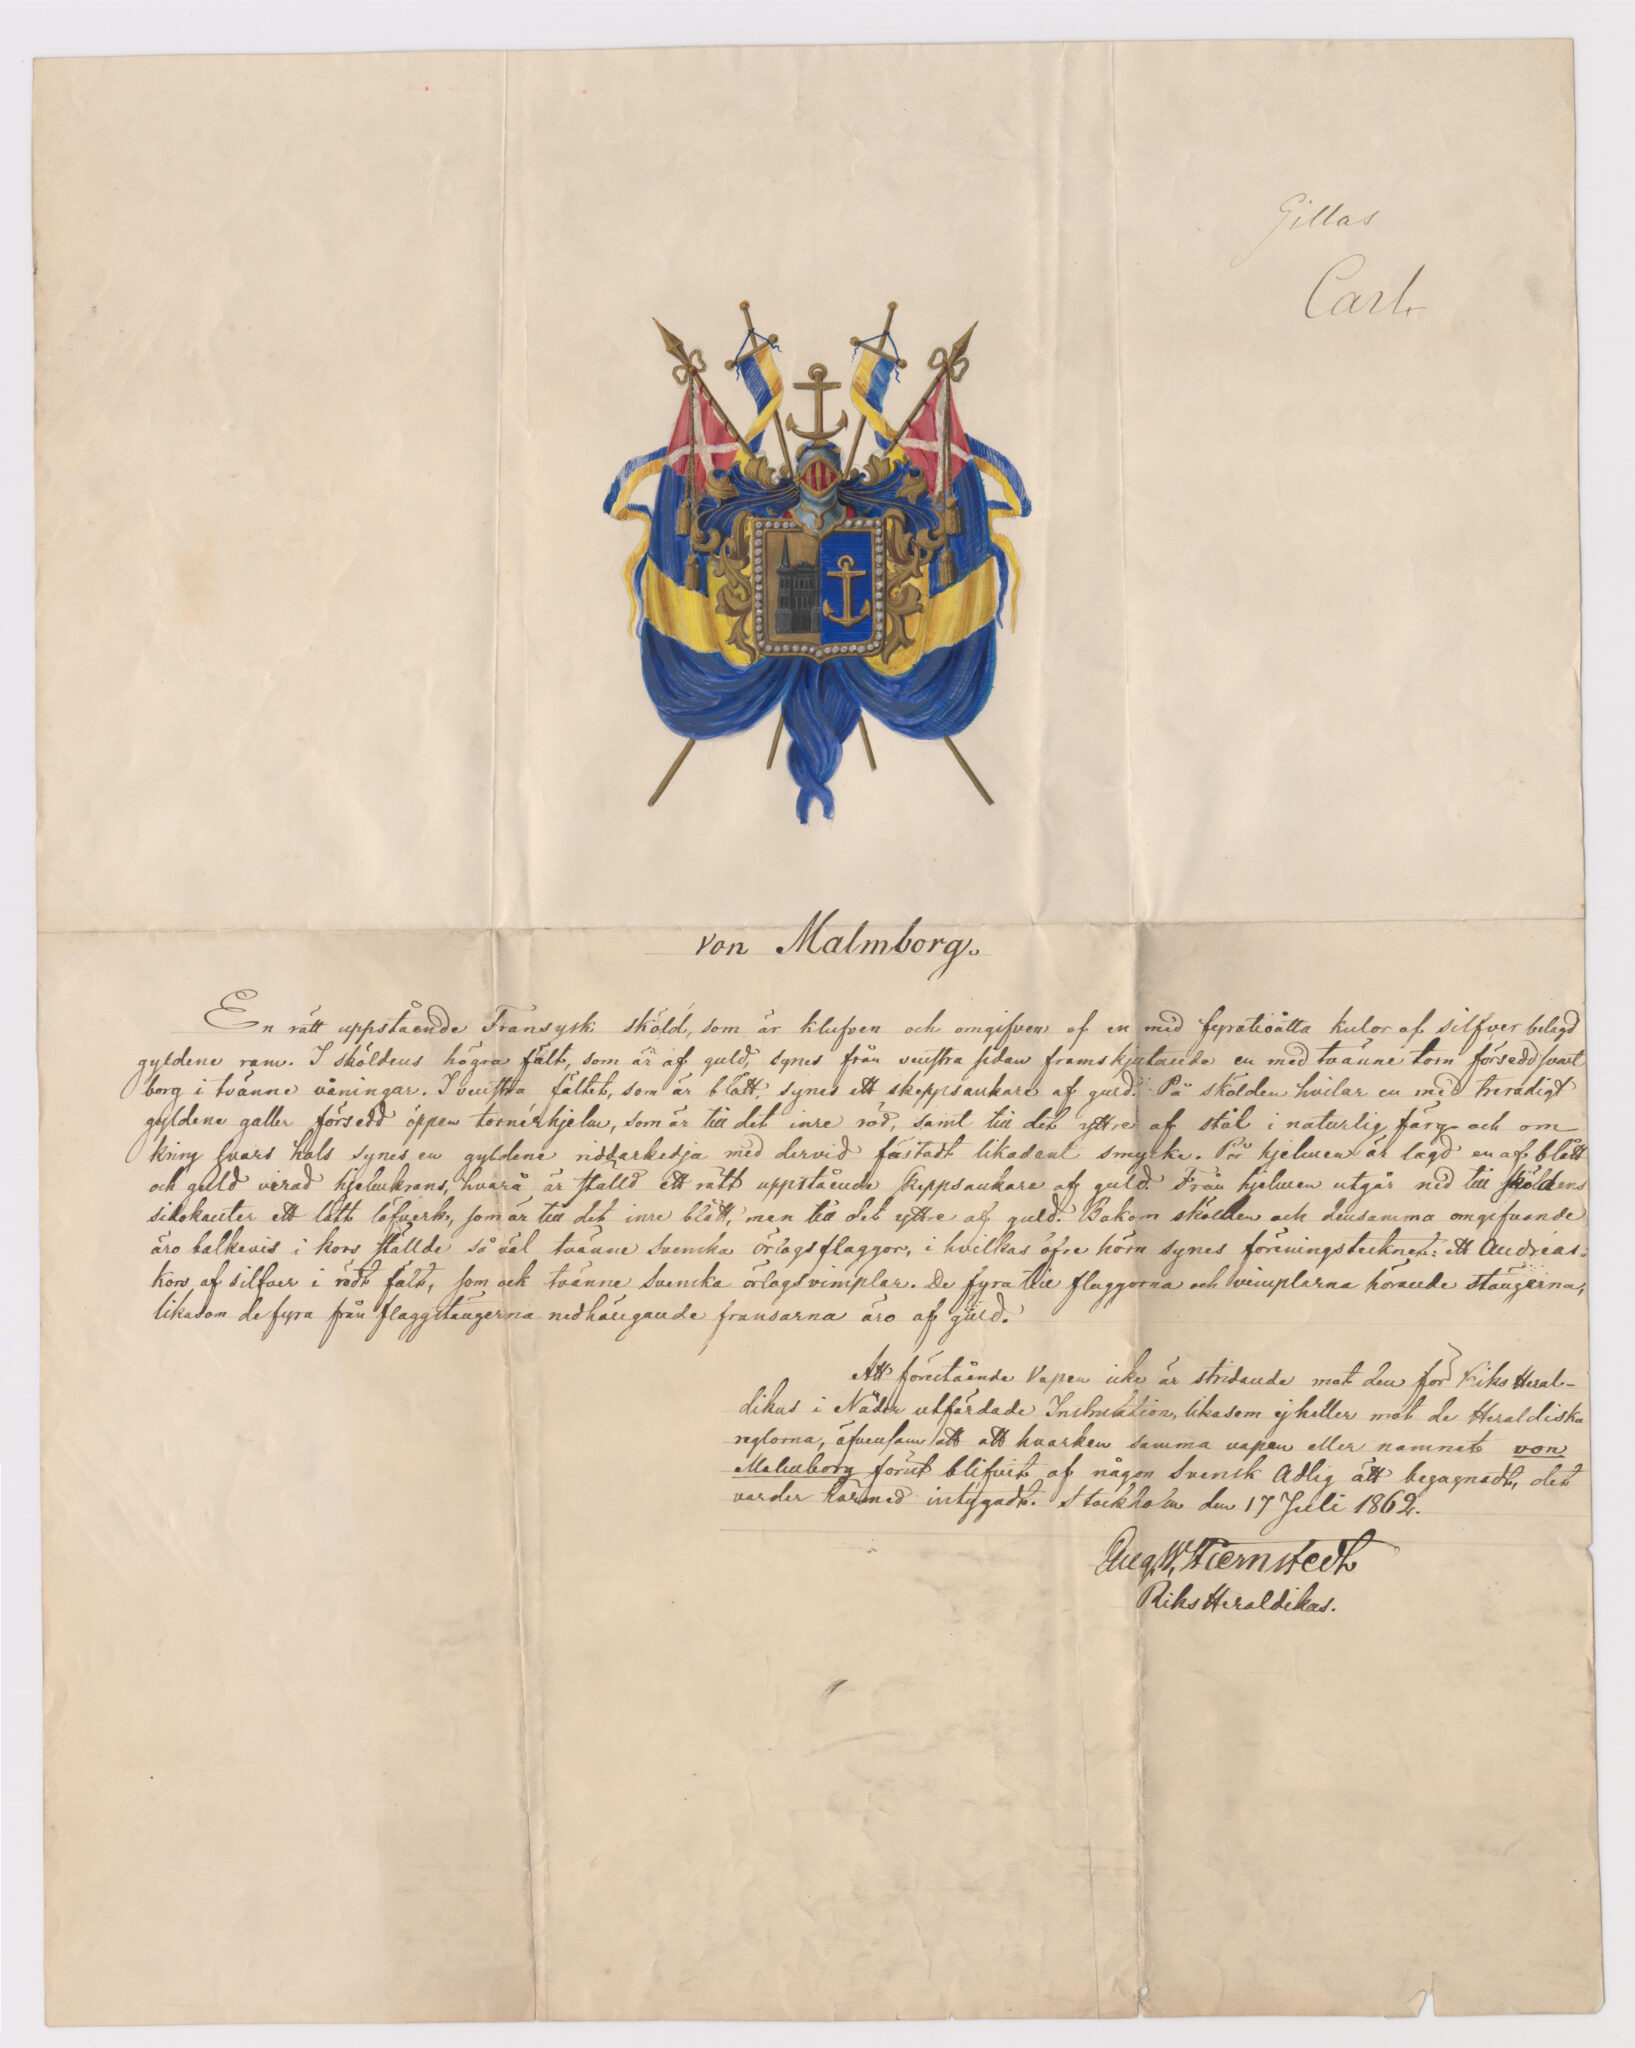 Gillas
Carl
von Malmborg.
En rätt uppstående Fransysk sköld, som är klufven och omgifven af en med fyratioåtta kulor af silfver belagd
gyldene ram. I sköldens högra fält, som är af guld, synes från venstra sidan framskjutande en med tvänne torn försedd svart
borg i tvänne våningar. I venstra fältet, som är blått, synes ett skeppsankare af guld. På skölden hvilar en med treradigt
gyldene galler försedd öppen tornérhjelm, som är till det inre röd, samt till det yttre af stål i naturlig färg och om
kring hvars hals synes en gyldene riddarkedja med dervid fästadt likadant smycke. På hjelmen är lagd en af blått
och guld virad hjelmkrans, hvarå är ställd ett rätt uppstående skeppsankare af guld. Från hjelmen utgår ned till sköldens
sidokanter ett lätt löfverk, som är till det inre blått, men till det yttre af guld. Bakom skölden och densamma omgifvande
äro balkevis i kors ställde så väl tvänne Svenska örlogsflaggor, i hvilkas öfre hörn synes föreningstecknet: ett Andreas-
kors af silfver i rödt fält, som ock tvänne Svenska örlogsvimplar. De fyra till flaggorna och vimplarna hörande stängerna,
likasom de fyra från flaggstängerna nedhängande fransarna äro af guld.
Att förestående Vapen icke är stridande mot den för Riks Heral-
dikus i Nåder utfärdade Instruktion, likasom ej heller mot de Heraldiska
reglorna, äfvensom att att hvarken samma vapen eller namnet von
Malmborg förut blifvit af någon Svensk Adlig ätt begagnadt, det
varder härmed intygadt. Stockholm den 17 Juli 1862.
Aug. W. Stiernstedt
Riks Heraldikus.